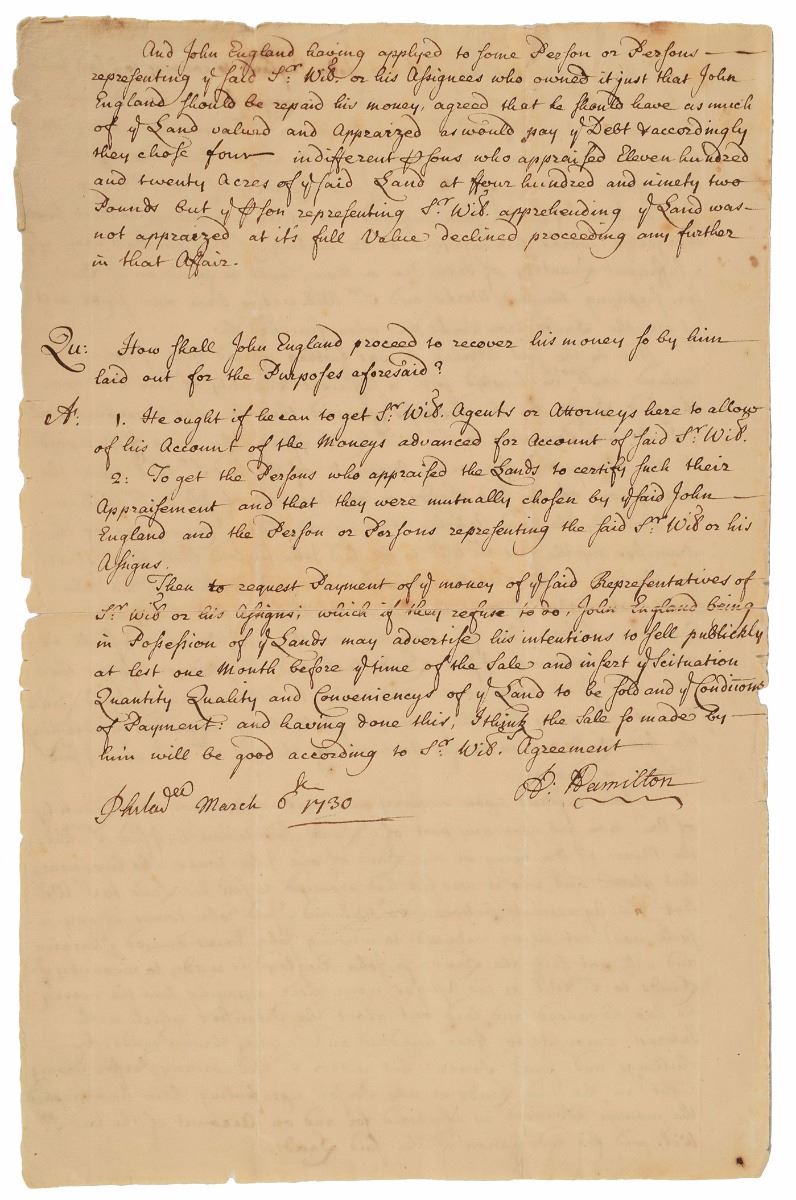 And John England having applyed to some Person or Persons —
representing yͤ said Sʳ. Wᵐ. or his Assignees who owned it just that John
England should be repaid his money, agreed that he should have as much
of yͤ Land valued and Appraized as would pay yͤ Debt & accordingly
they chose four indifferent ꝑsons who appraised Eleven hundred
and twenty Acres of yͤ said Land at ffour hundred and ninety two
Pounds but yͤ ꝑson representing Sʳ. Wᵐ. apprehending yͤ Land was-
not appraized at it's full Value declined proceeding any further
in that Affair.
Qu: How shall John England proceed to recover his money so by him
laid out for the Purposes aforesaid?
A: 1. He ought if he can to get Sʳ. Wᵐ. Agents or Attorneys here to allow
of his Account of the Moneys advanced for Account of said Sʳ. Wᵐ.
2: To get the Persons who appraised the Lands to certify such their
Appraisement and that they were mutually chosen by yͤ said John —
England and the Person or Persons representing the said Sʳ. Wᵐ or his
Assigns.
Then to request Payment of yͤ money of yͤ said Representatives of
Sʳ. Wᵐ or his Assigns; which if they refuse to do, John England being
in Possession of yͤ Lands may advertise his intentions to sell publickly
at lest one Month before yͤ time of the Sale and insert yͤ Scituation
Quantity Quality and Conveniencys of yͤ Land to be sold and yͤ Conditions
of Payment: and having done this, I think the Sale so made by —
him will be good according to Sʳ. Wᵐ.ˢ Agreement
Philadᵉˡ March 6ᵗʰ 1730 A: Hamilton